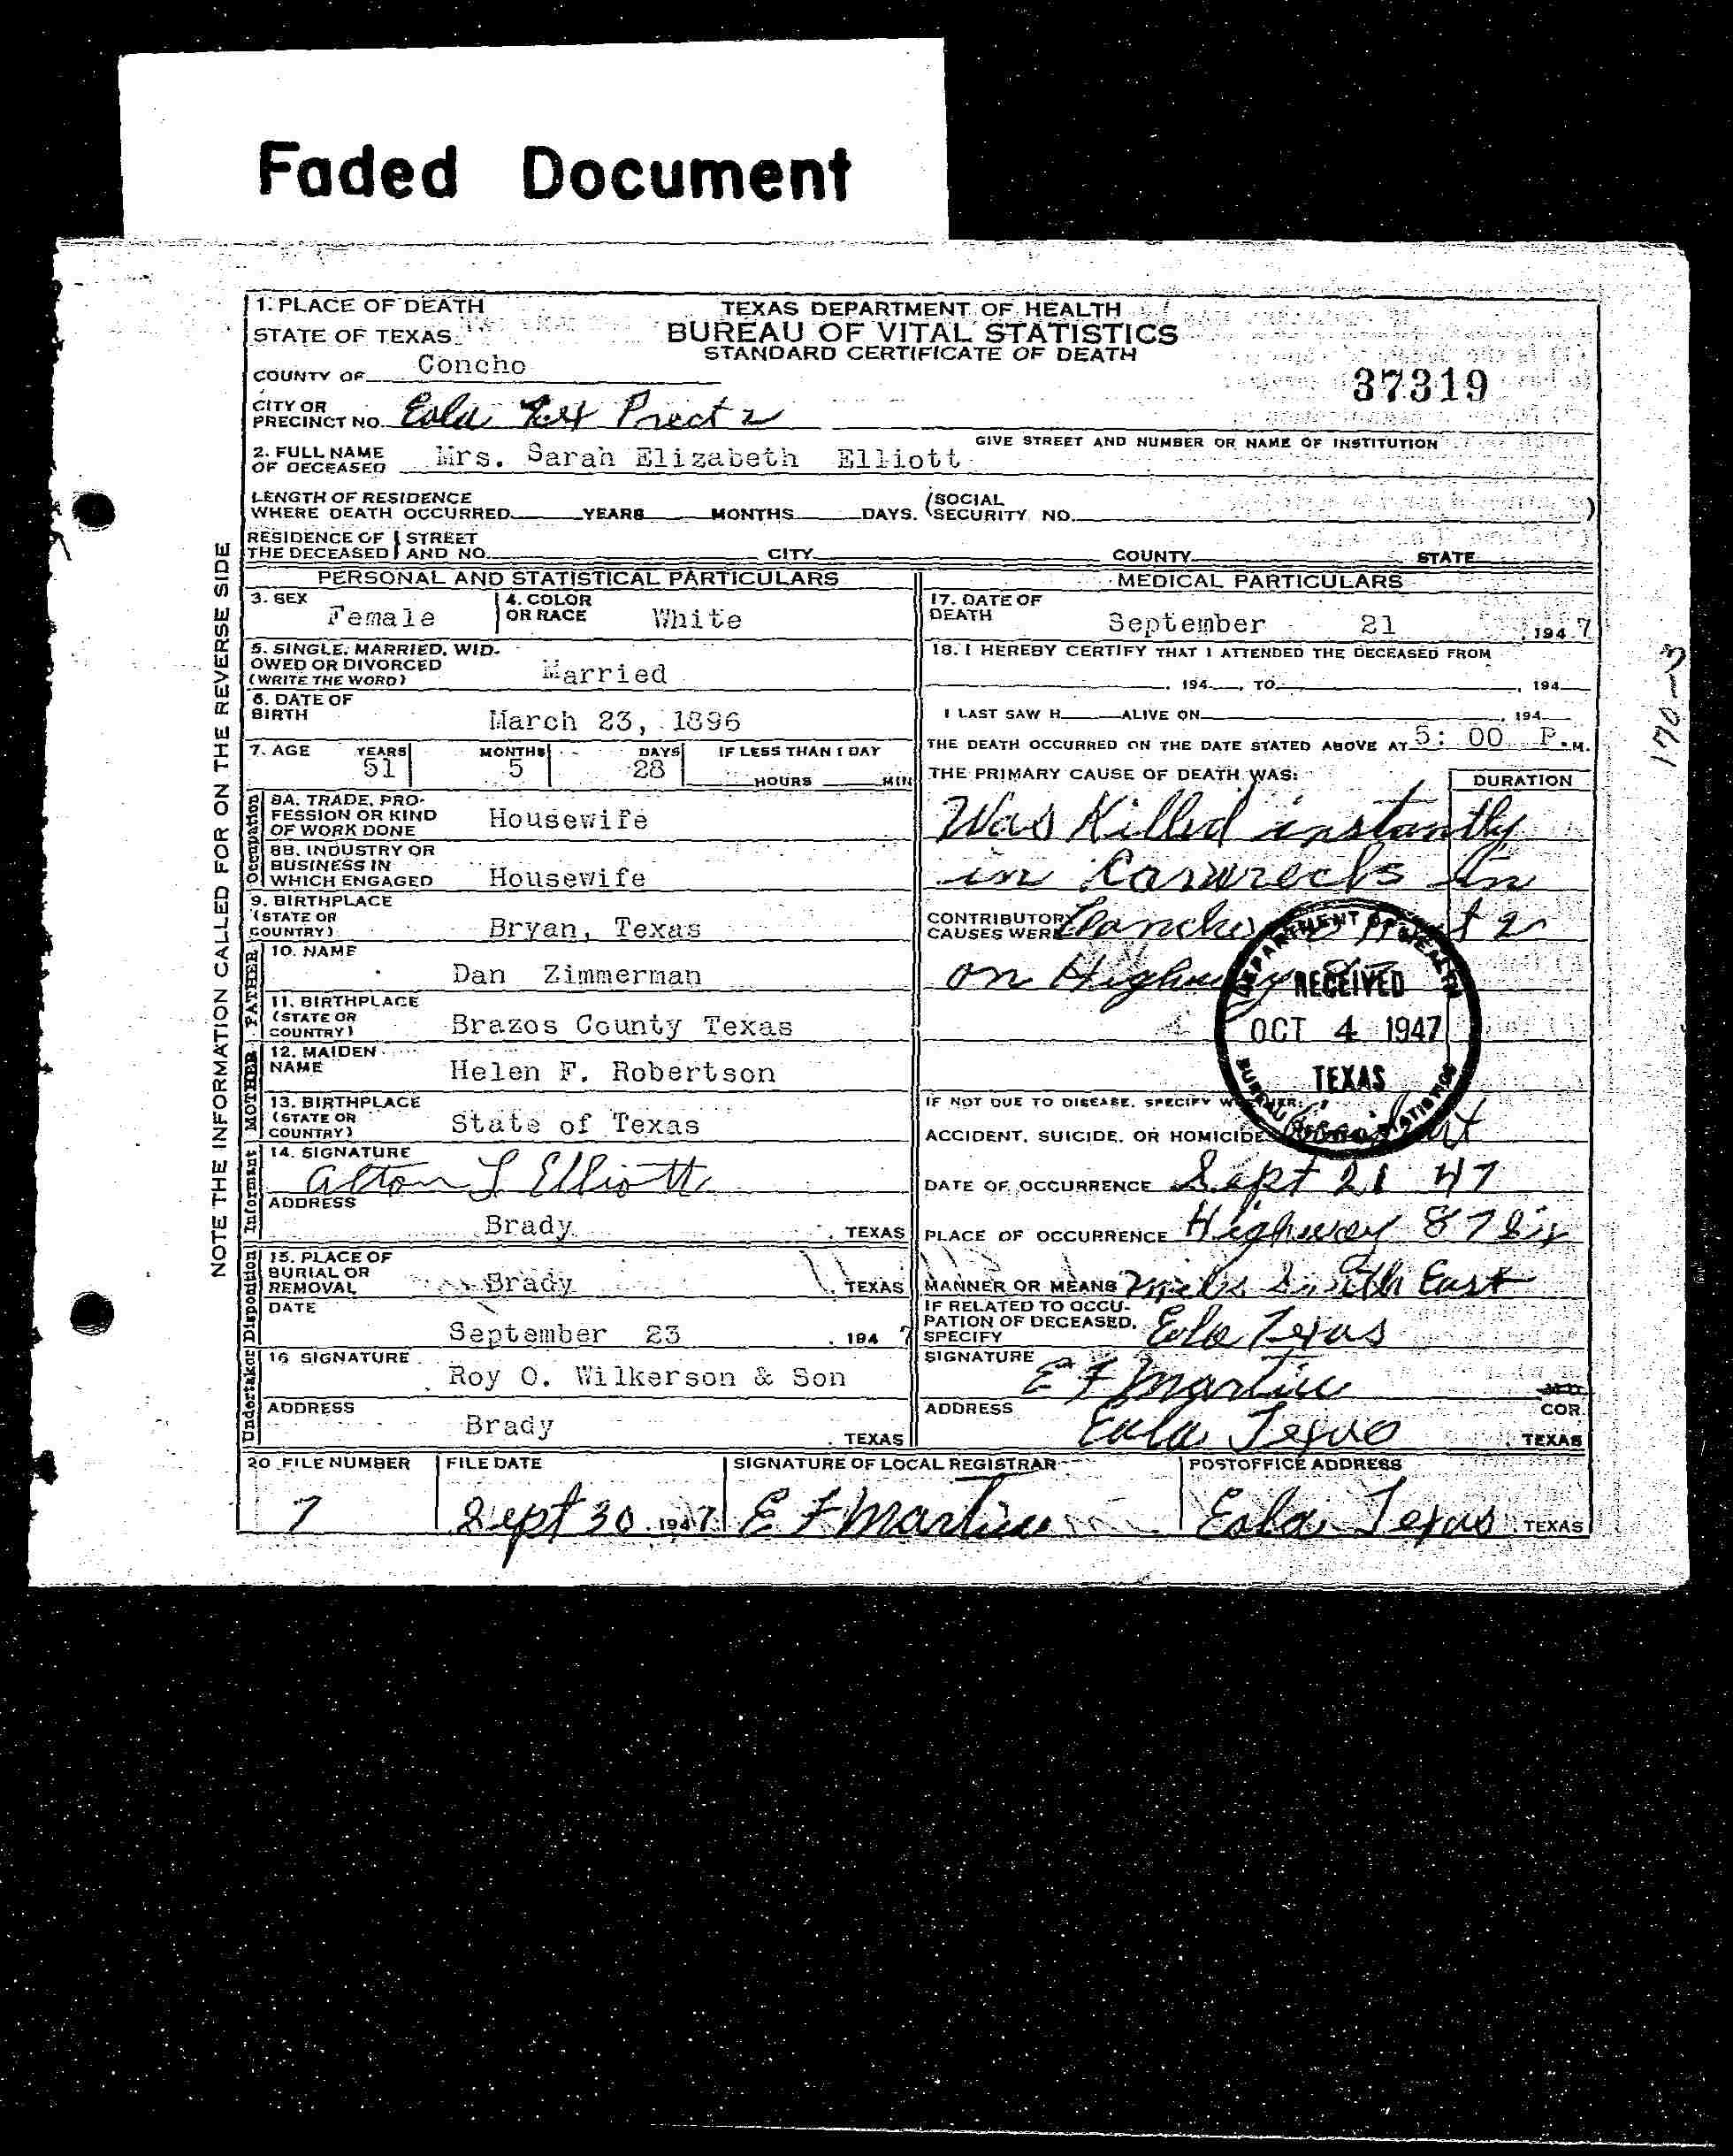 Faded Document
1. PLACE OF DEATH
STATE OF TEXAS
COUNTY OF Concho
TEXAS DEPARTMENT OF HEALTH
BUREAU OF VITAL STATISTICS
STANDARD CERTIFICATE OF DEATH
37319
CITY OR PRECINCT NO. Eola Text Prect 2
GIVE STREET AND NUMBER OR NAME OF INSTITUTION
2. FULL NAME OF DECEASED Mrs. Sarah Elizabeth Elliott
LENGTH OF RESIDENCE
WHERE DEATH OCCURRED YEARS MONTHS DAYS. (SOCIAL SECURITY NO. )
RESIDENCE OF THE DECEASED STREET AND NO. CITY COUNTY STATE
NOTE THE INFORMATION CALLED FOR ON THE REVERSE SIDE
PERSONAL AND STATISTICAL PARTICULARS
3. SEX Female 4. COLOR OR RACE White
5. SINGLE, MARRIED, WIDOWED OR DIVORCED (WRITE THE WORD) Married
6. DATE OF BIRTH March 23, 1896
7. AGE YEARS 51 MONTHS 5 DAYS 28 IF LESS THAN 1 DAY HOURS MIN
Occupation
8A. TRADE, PROFESSION OR KIND OF WORK DONE Housewife
8B. INDUSTRY OR BUSINESS IN WHICH ENGAGED Housewife
9. BIRTHPLACE (STATE OR COUNTRY) Bryan, Texas
FATHER
10. NAME Dan Zimmerman
11. BIRTHPLACE (STATE OR COUNTRY) Brazos County Texas
MOTHER
12. MAIDEN NAME Helen F. Robertson
13. BIRTHPLACE (STATE OR COUNTRY) State of Texas
Informant
14. SIGNATURE Alton L Elliott
ADDRESS Brady TEXAS
Disposition
15. PLACE OF BURIAL OR REMOVAL Brady TEXAS
DATE September 23, 1947
Undertaker
16 SIGNATURE Roy O. Wilkerson & Son
ADDRESS Brady TEXAS
MEDICAL PARTICULARS
17. DATE OF DEATH September 21, 1947
18. I HEREBY CERTIFY THAT I ATTENDED THE DECEASED FROM
, 194 , TO , 194
I LAST SAW H ALIVE ON , 194
THE DEATH OCCURRED ON THE DATE STATED ABOVE AT 5:00 P.M.
THE PRIMARY CAUSE OF DEATH WAS: DURATION
Was Killed instantly
in Carwrecks in
CONTRIBUTORY CAUSES WERE Concho 2
on Highway
DEPARTMENT OF HEALTH
RECEIVED
OCT 4 1947
TEXAS
BUREAU STATISTICS
IF NOT DUE TO DISEASE, SPECIFY WHETHER:
ACCIDENT, SUICIDE, OR HOMICIDE
DATE OF OCCURRENCE Sept 21 47
PLACE OF OCCURRENCE Highway 87 Six
MANNER OR MEANS miles South East
IF RELATED TO OCCUPATION OF DECEASED, SPECIFY Eola Texas
SIGNATURE E F Martin M.D.
COR.
ADDRESS Eola Texas TEXAS
170-3
20 FILE NUMBER 7 FILE DATE Sept 30, 1947 SIGNATURE OF LOCAL REGISTRAR E F Martin POSTOFFICE ADDRESS Eola Texas, TEXAS